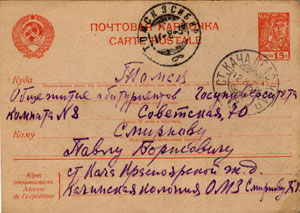 ПОЧТОВАЯ КАРТОЧКА
CARTE POSTALE
15
ТОМСК З СИБ
СТ. КАЧА
Куда Томск
Общежитие абитуриентов Госуниверситета
комната N8 Советская, 70
Кому Смирнову
Павлу Борисовичу
Адрес отправителя
Adresse de l'expéditeur
ст Кача Красноярской ж.д.
Качинская колония ОМЗ Смирнову